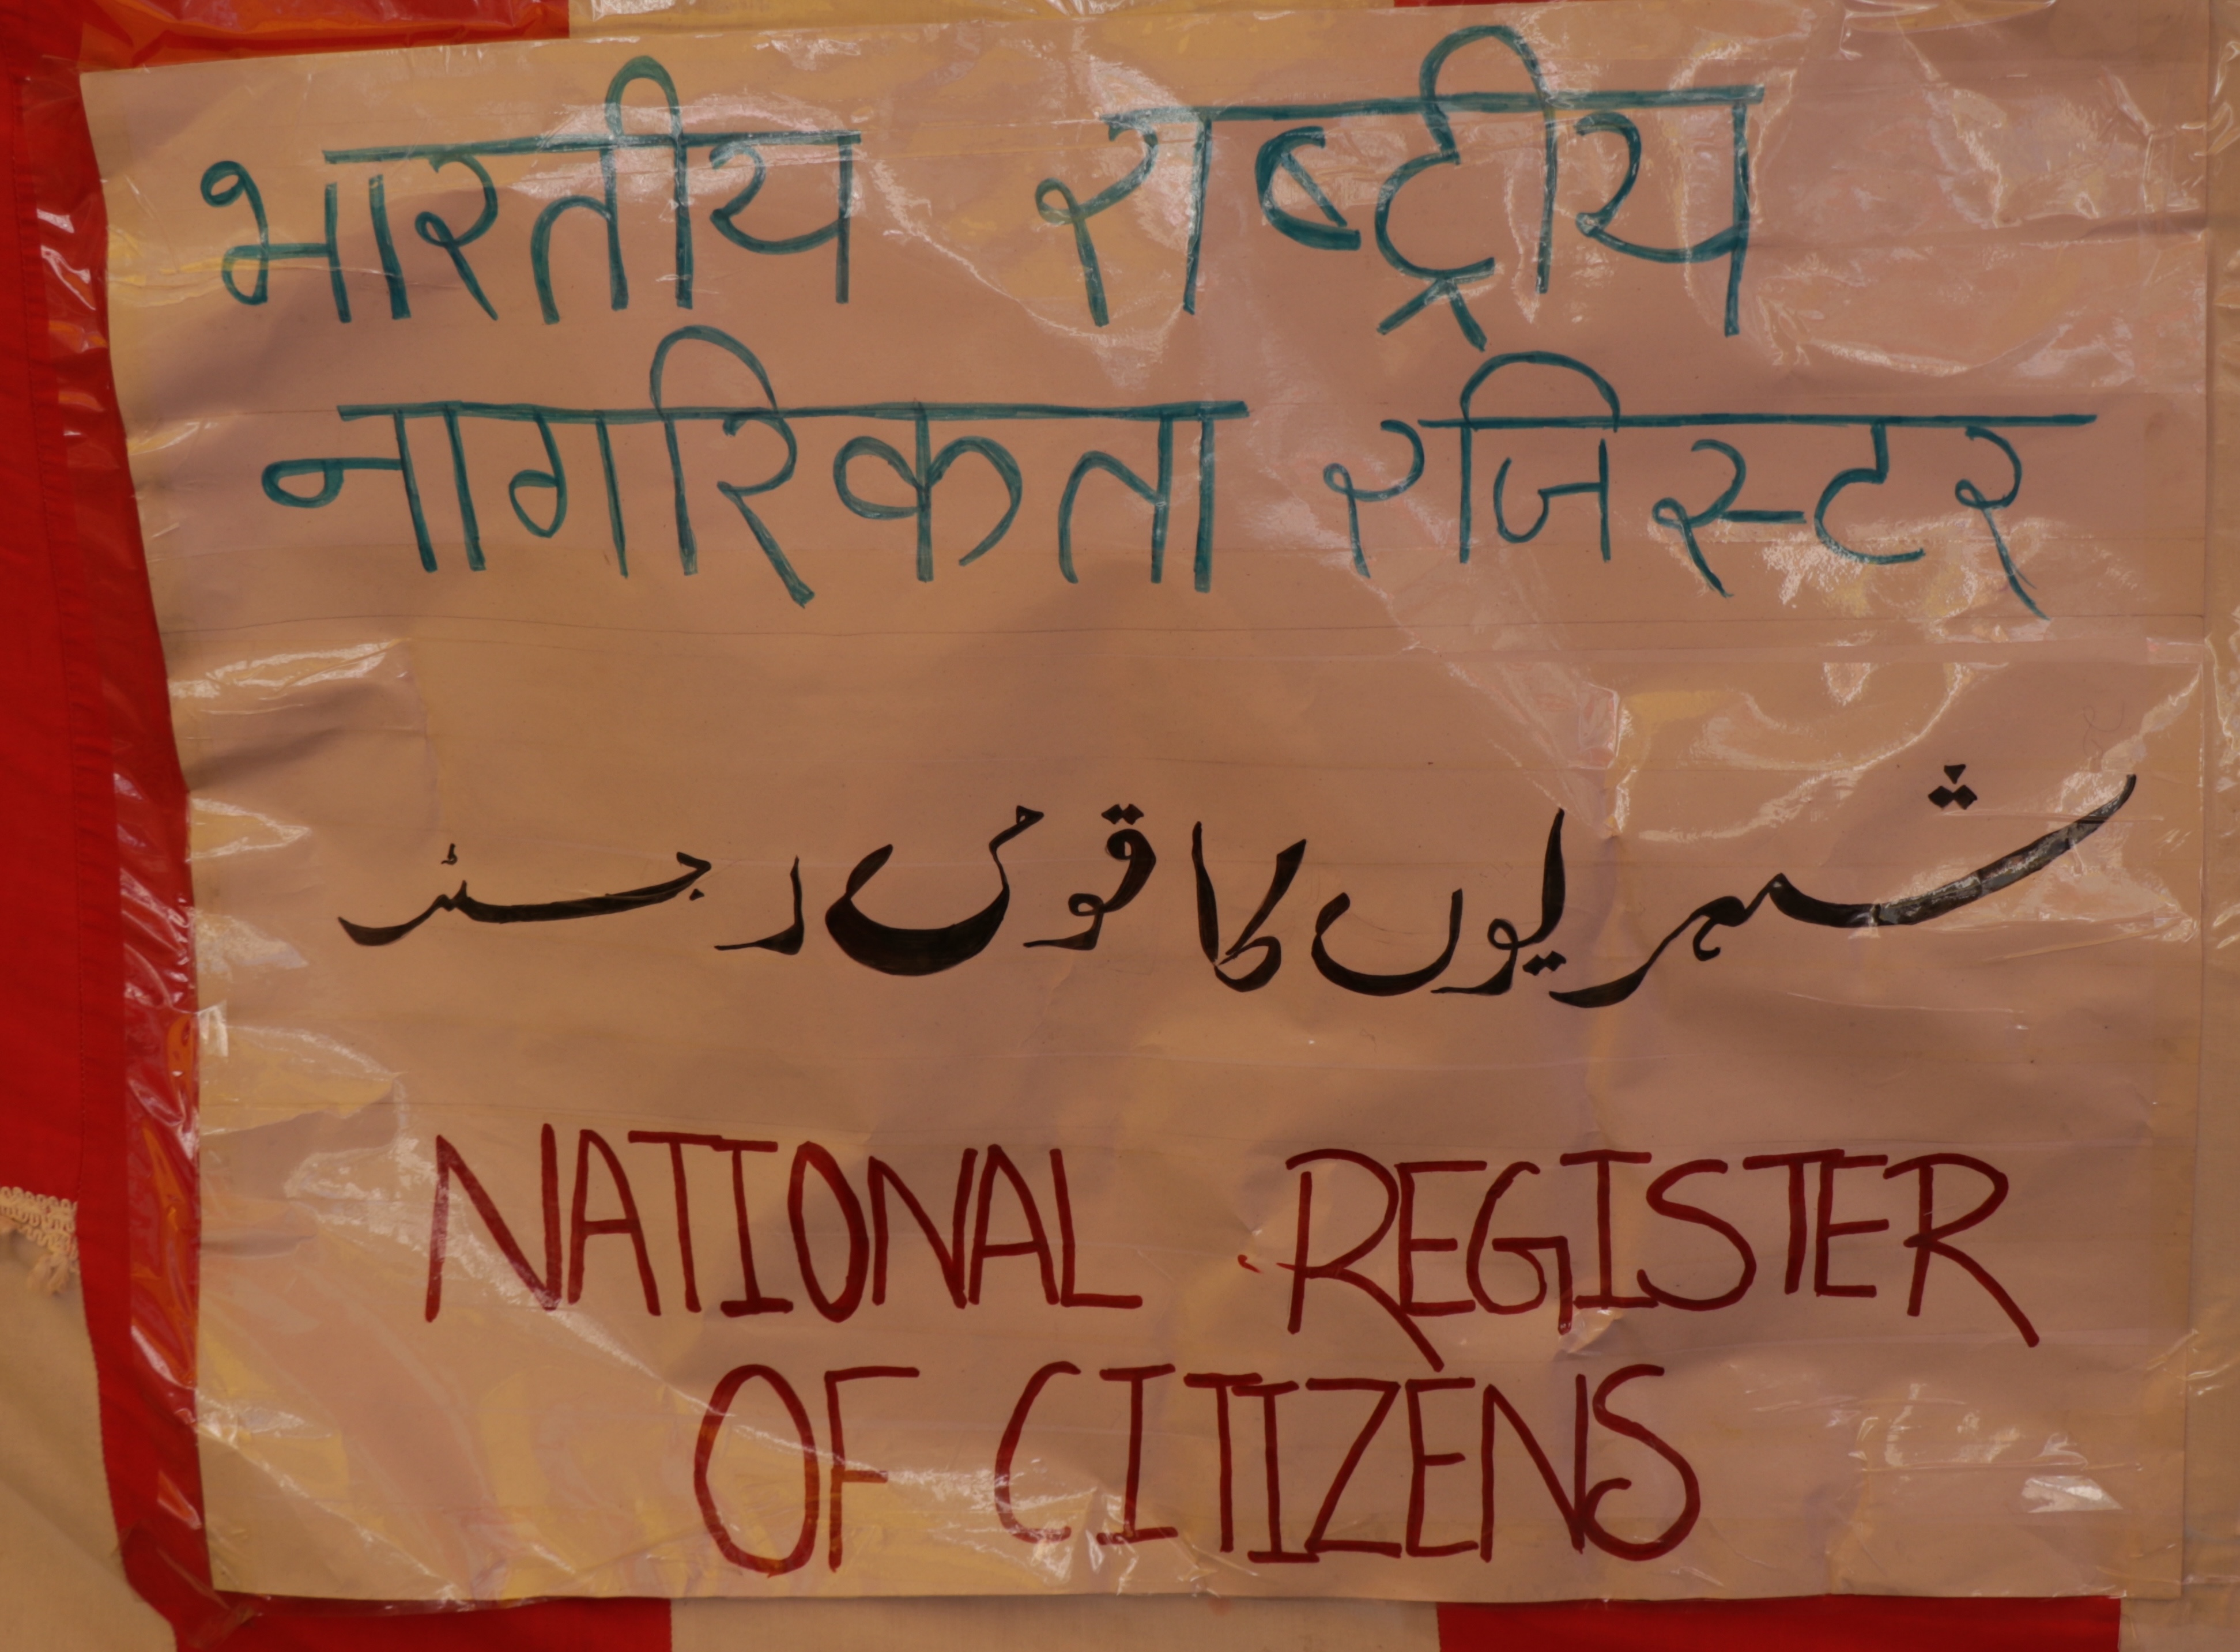 भारतीय राष्ट्रीय
नागरिकता रजिस्टर
شہریوں کا قومی رجسٹر
NATIONAL REGISTER
OF CITIZENS